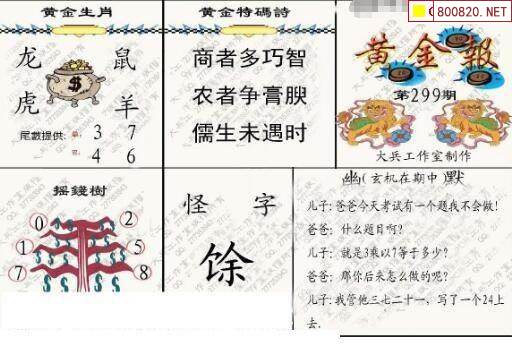 黄金生肖
龙 鼠
虎 羊
尾數提供:單: 3 7
4 6
黄金特碼詩
商者多巧智
农者争膏腴
儒生未遇时
800820.NET
黄金報
第299期
大兵工作室制作
摇錢樹
0 2
1 5
7 8
怪 字
馀
幽(玄机在期中)默
儿子:爸爸今天考试有一个题我不会做!
爸爸: 什么题目啊?
儿子: 就是3乘以7等于多少?
爸爸: 那你后来怎么做的呢?
儿子:我管他三七二十一，写了一个24上
去.